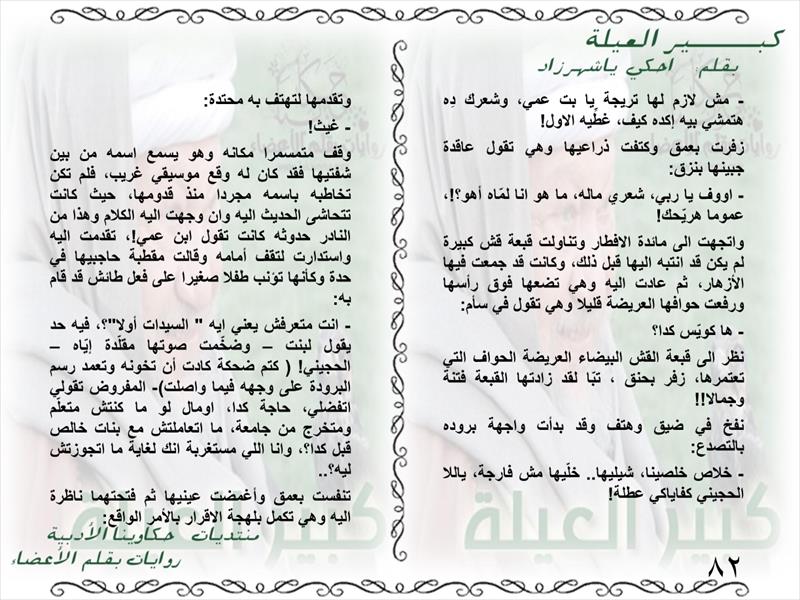 كبـــــير العيلة
بقلم احكي ياشهرزاد
- مش لازم لها تريجة يا بت عمي، وشعرك دِه
هتمشي بيه إكده كيف، غطّيه الاول!
زفرت بعمق وكتفت ذراعيها وهي تقول عاقدة
جبينها بنزق:
- اووف يا ربي، شعري ماله، ما هو انا لمّاه أهو؟!،
عموما هريّحك!
واتجهت الى مائدة الافطار وتناولت قبعة قش كبيرة
لم يكن قد انتبه اليها قبل ذلك، وكانت قد جمعت فيها
الأزهار، ثم عادت اليه وهي تضعها فوق رأسها
ورفعت حوافها العريضة قليلا وهي تقول في سأم:
- ها كويّس كدا؟
نظر الى قبعة القش البيضاء العريضة الحواف التي
تعتمرها، زفر بحنق ، تبّا لقد زادتها القبعة فتنة
وجمالا!!
نفخ في ضيق وهتف وقد بدأت واجهة بروده
بالتصدع:
- خلاص خلصينا، شيليها.. خلّيها مش فارجة، ياللا
الحجيني كفاياكي عطلة!
وتقدمها لتهتف به محتدة:
- غيث!
وقف متسمرا مكانه وهو يسمع اسمه من بين
شفتيها فقد كان له وقع موسيقي غريب، فلم تكن
تخاطبه باسمه مجردا منذ قدومها، حيث كانت
تتحاشى الحديث اليه وان وجهت اليه الكلام وهذا من
النادر حدوثه كانت تقول ابن عمي!، تقدمت اليه
واستدارت لتقف أمامه وقالت مقطبة حاجبيها في
حدة وكأنها تؤنب طفلا صغيرا على فعل طائش قد قام
به:
- انت متعرفش يعني ايه " السيدات أولا"؟، فيه حد
يقول لبنت – وضخّمت صوتها مقلّدة إيّاه –
الحجيني! ( كتم ضحكة كادت أن تخونه وتعمد رسم
البرودة على وجهه فيما واصلت)- المفروض تقولي
اتفضلي، حاجة كدا، اومال لو ما كنتش متعلّم
ومتخرج من جامعة، ما اتعاملتش مع بنات خالص
قبل كدا؟، وانا اللي مستغربة انك لغاية ما اتجوزتش
ليه؟..
تنفست بعمق وأغمضت عينيها ثم فتحتهما ناظرة
اليه وهي تكمل بلهجة الاقرار بالأمر الواقع:
كبير العيلة
كبير العيلة
منتديات حكاوينا الأدبية
روايات بقلم الأعضاء
٨٢